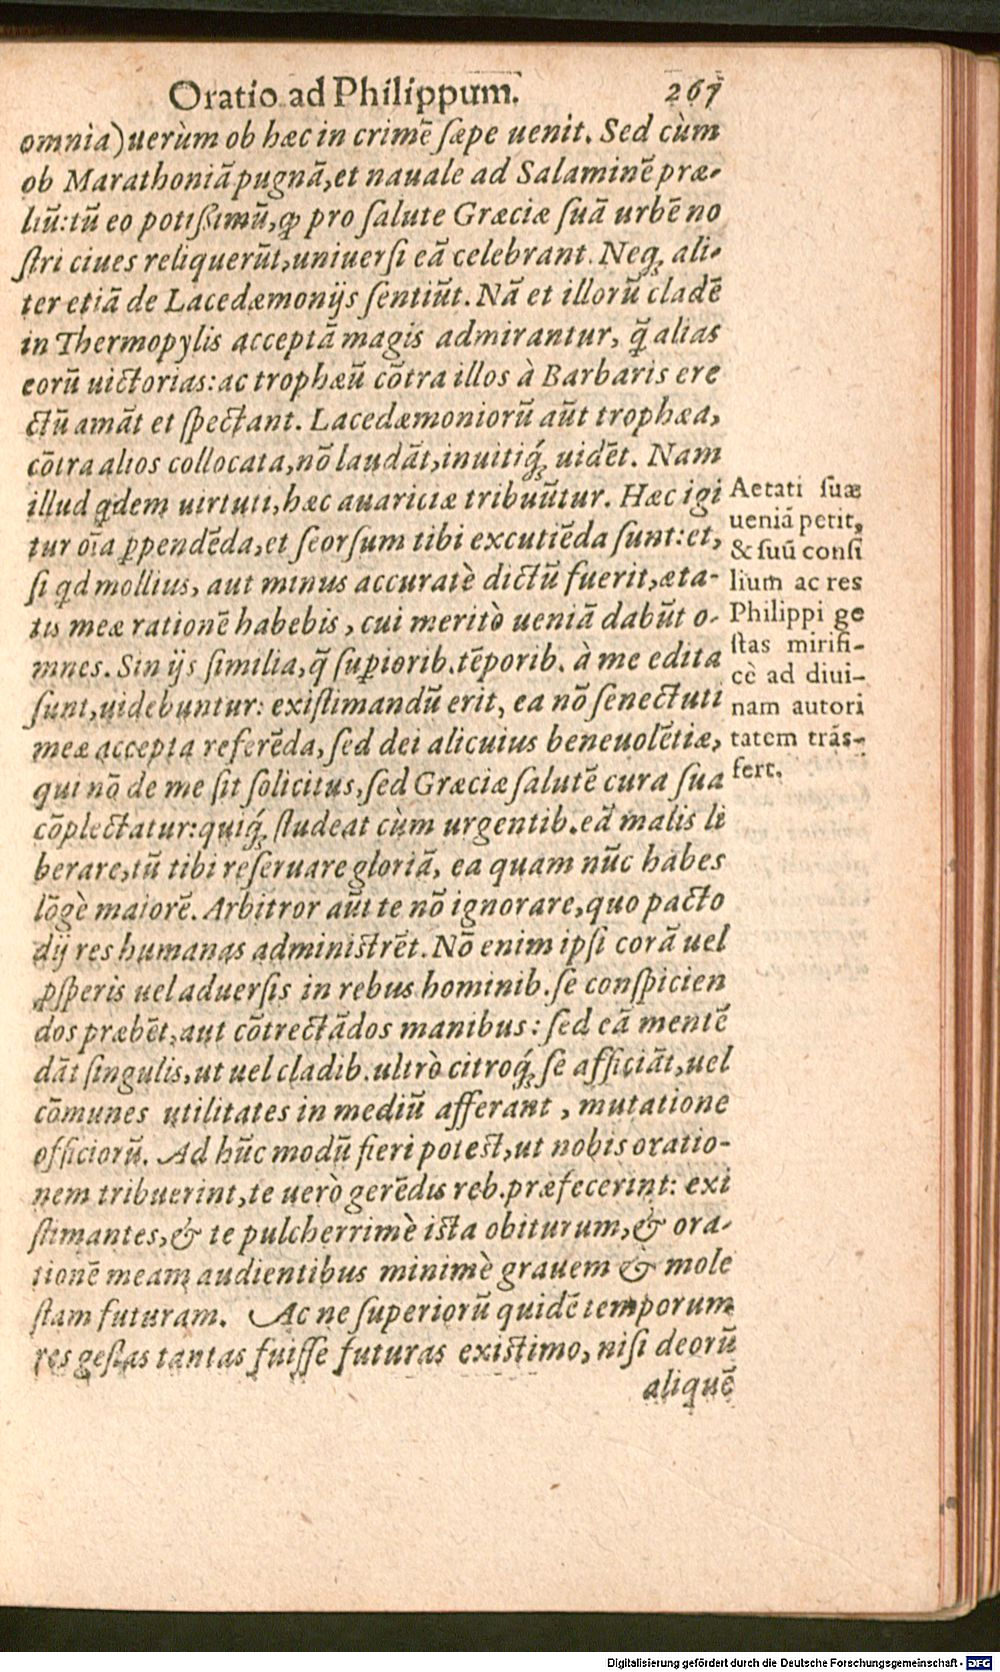 Oratio ad Philippum. 267
omnia) uerùm ob hæc in crimē ſæpe uenit. Sed cùm
ob Marathoniā pugnā, et nauale ad Salaminē præ-
liū: tū eo potiſsimū, ꝙ pro ſalute Græciæ ſuā urbē no
ſtri ciues reliquerūt, uniuerſi eā celebrant. Neq; ali-
ter etiā de Lacedæmonijs ſentiūt. Nā et illorū cladē
in Thermopylis acceptā magis admirantur, q̃ alias
eorū uictorias: ac trophæū cōtra illos à Barbaris ere
ctū amāt et ſpectant. Lacedæmoniorū aūt trophæa,
cōtra alios collocata, nō laudāt, inuitiq́; uidēt. Nam
illud qdem uirtuti, hæc auariciæ tribuūtur. Hæc igi
tur oīa ꝑpendēda, et ſeorſum tibi excutiēda ſunt: et,
ſi qd mollius, aut minus accuratè dictū fuerit, æta-
tis meæ rationē habebis, cui meritò ueniā dabūt o-
mnes. Sin ijs ſimilia, q̃ ſuꝑiorib. tēporib. à me edita
ſunt, uidebuntur: exiſtimandū erit, ea nō ſenectuti
meæ accepta referēda, ſed dei alicuius beneuolētiæ,
qui nō de me ſit ſolicitus, ſed Græciæ ſalutē cura ſua
cōplectatur: quiq́; ſtudeat cùm urgentib. eā malis li
berare, tū tibi reſeruare gloriā, ea quam nūc habes
lōgè maiorē. Arbitror aūt te nō ignorare, quo pacto
dij res humanas adminiſtrēt. Nō enim ipſi corā uel
ꝓſperis uel aduerſis in rebus hominib. ſe conſpicien
dos præbēt, aut cōtrectādos manibus: ſed eā mentē
dāt ſingulis, ut uel cladib. ultrò citroq́; ſe afficiāt, uel
cōmunes utilitates in mediū afferant, mutatione
officiorū. Ad hūc modū fieri poteſt, ut nobis oratio-
nem tribuerint, te uerò gerēdis reb. præfecerint: exi
ſtimantes, & te pulcherrimè iſta obiturum, & ora-
tionē meam audientibus minimè grauem & mole
ſtam futuram. Ac ne ſuperiorū quidē temporum
res geſtas tantas fuiſſe futuras exiſtimo, niſi deorū
aliquē
Aetati ſuæ
ueniā petit,
& ſuū conſi
lium ac res
Philippi ge
ſtas mirifi-
cè ad diui-
nam autori
tatem trāſ-
fert.
Digitalisierung gefördert durch die Deutsche Forschungsgemeinschaft - DFG